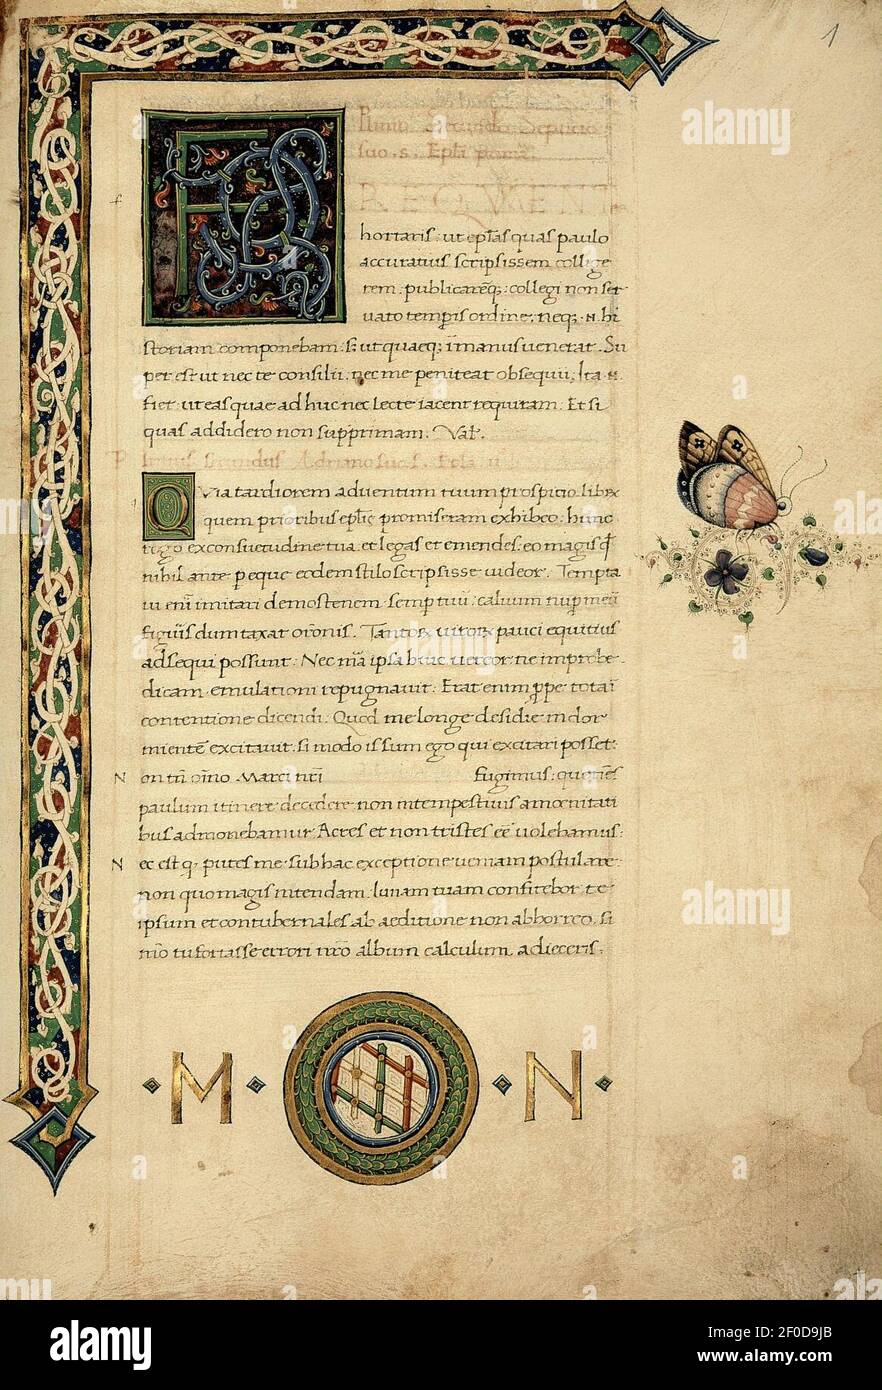 1
Plinius Secundus Septicio
suo. s. Epla prima.
F REQVENT
hortaris: ut eplas quas paulo
accuratius scripsissem collige
rem: publicaremq;: collegi non ser
uato temporis ordine; neq; .N. hi
storiam componebam: s; ut quaeq; i manus uenerat. Su
per est ut nec te consilii. nec me peniteat obsequii, Ita .N.
fiet: ut eas quae ad huc neclecte iacent requiram. Et si
quas addidero non supprimam. Val.
Plinius secundus Adriano suo. S. Epla ii
QVia tardiorem aduentum tuum prospicio. libr
quem prioribus eplis promiseram exhibeo: hunc
rogo ex consuetudine tua. et legas et emendes. eo magis
nihil ante peque eodem stilo scripsisse uideor. Tempta
ui eni imitari demostenem semp tuu: caluum nup meu
figuris dumtaxat orōnis. Tantor uitor pauci equitius
adsequi possunt. Nec mā ipsa huic uereor ne improbe
dicam. emulationi repugnauit. Erat enim ppe tota i
contentione dicendi. Quod me longe desidie indor
mientē excitauit. si modo is sum ego qui excitari posset.
N on tn omo Marci nri fugimus: quotiēs
paulum itinere decedere non intempestiuis amoenitati
bus admonebamur Acres et non tristes eē uolebamus:
N ec est q; putes me. sub hac exceptione ueniam postulare.
non quo magis intendam. limam tuam confitebor. te
ipsum et contubernales ab aeditione non abhorreo. si
mō tu fortasse errori nrō album calculum adieceris.
M N
alamy
Image ID: 2F0D9JB
www.alamy.com